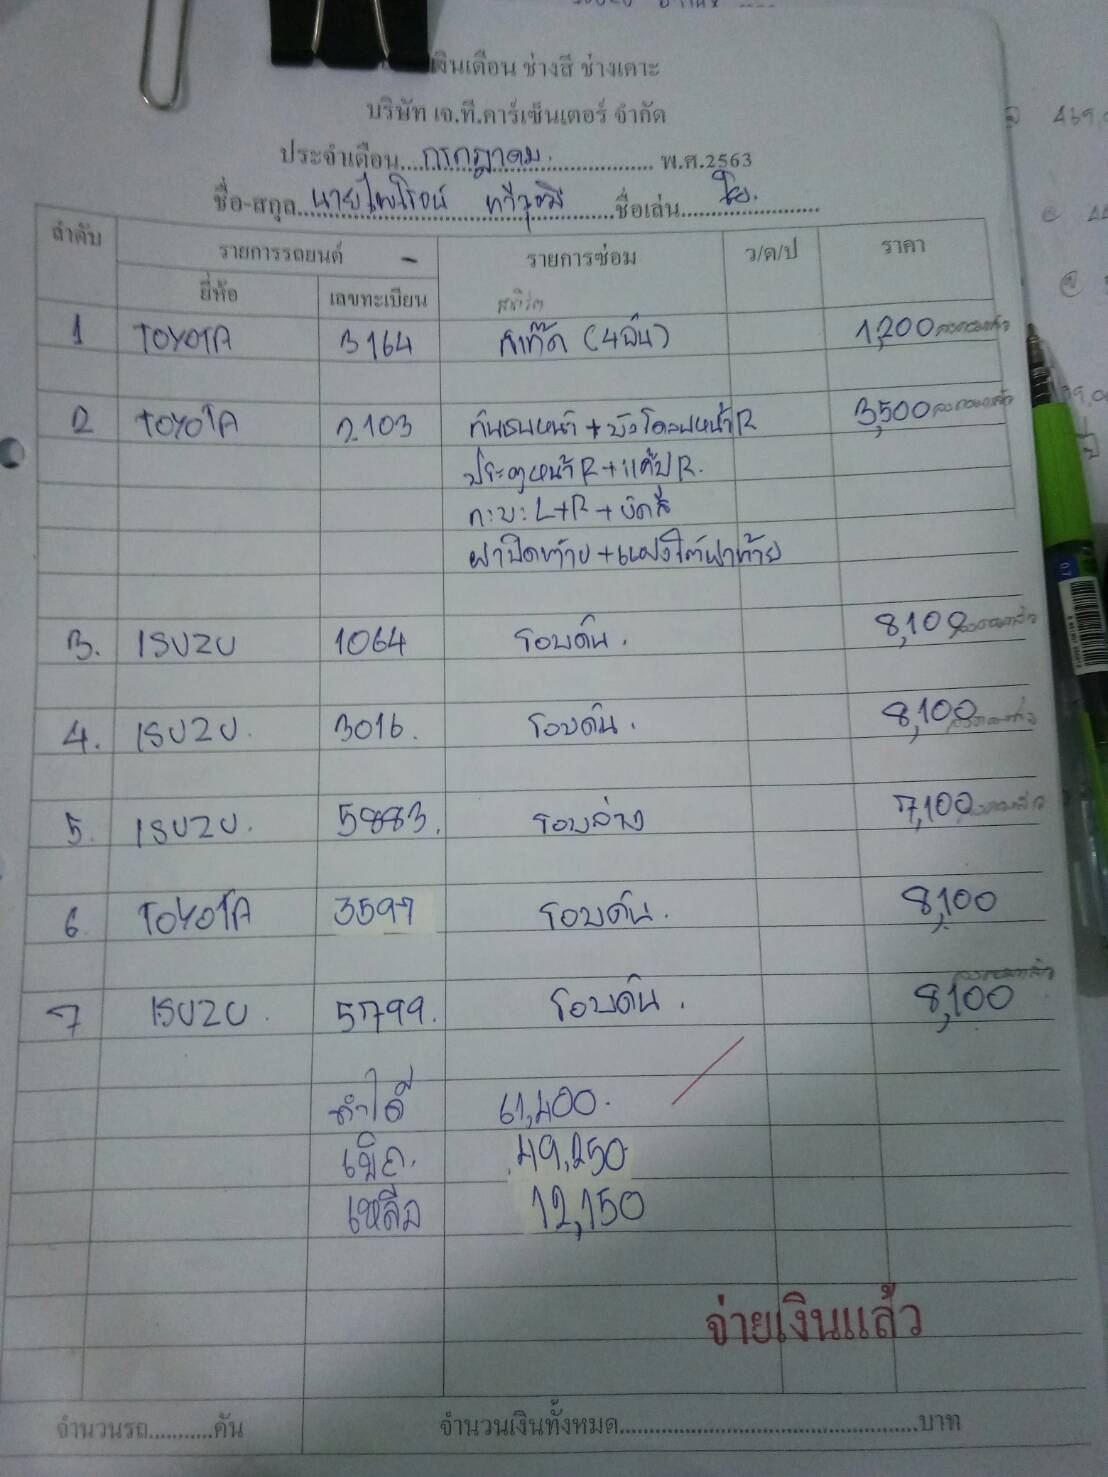 เงินเดือน ช่างสี ช่างเคาะ
บริษัท เจ.ที.คาร์เซ็นเตอร์ จำกัด
ประจำเดือน....กรกฎาคม.................... พ.ศ.2563
ชื่อ-สกุล...นายไพโรจน์ ทวีวุฒิ......ชื่อเล่น......โย.........
ลำดับ รายการรถยนต์ - รายการซ่อม ว/ด/ป ราคา
ยี่ห้อ เลขทะเบียน
1 TOYOTA 3164 (4ชิ้น) 1,200
2 TOYOTA 2103 กันชนหน้า + บังโคลนหน้า R 3,500
ประตูหน้า R + แค๊ป R.
กะบะ L+R + ขัดสี
ฝาปิดท้าย + แผงใต้ฝาท้าย
3. ISUZU 1064 รอบคัน. 8,100
4. ISUZU. 3016. รอบคัน. 8,100
5. ISUZU. 5883. รอบล่าง 7,100
6. TOYOTA 3597 รอบคัน. 8,100
7 ISUZU. 5799. รอบคัน. 8,100
ทำได้ 61,400.
เบิก. 49,250
เหลือ 12,150
จ่ายเงินแล้ว
จำนวนรถ...........คัน จำนวนเงินทั้งหมด..................................................บาท